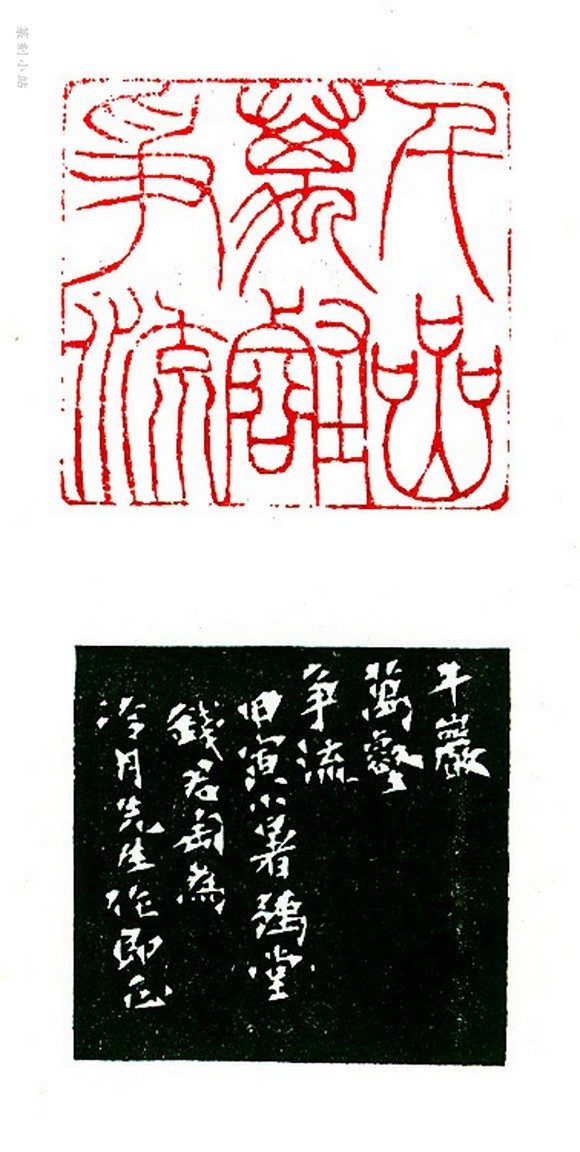 篆刻小站
千嵒
萬壑
爭流
千巖
萬壑
爭流
甲寅小暑豫堂
錢君匋為
冷月先生作即正